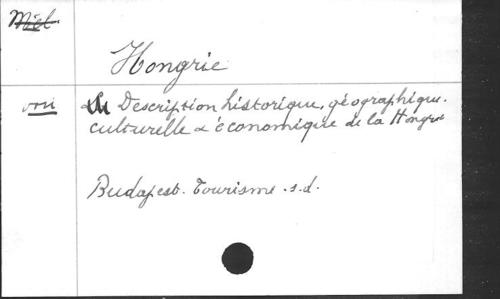 Hongrie
voir Description historique, géographique,
culturelle & économique de la Hongrie
Budapest. Tourisme. s.d.